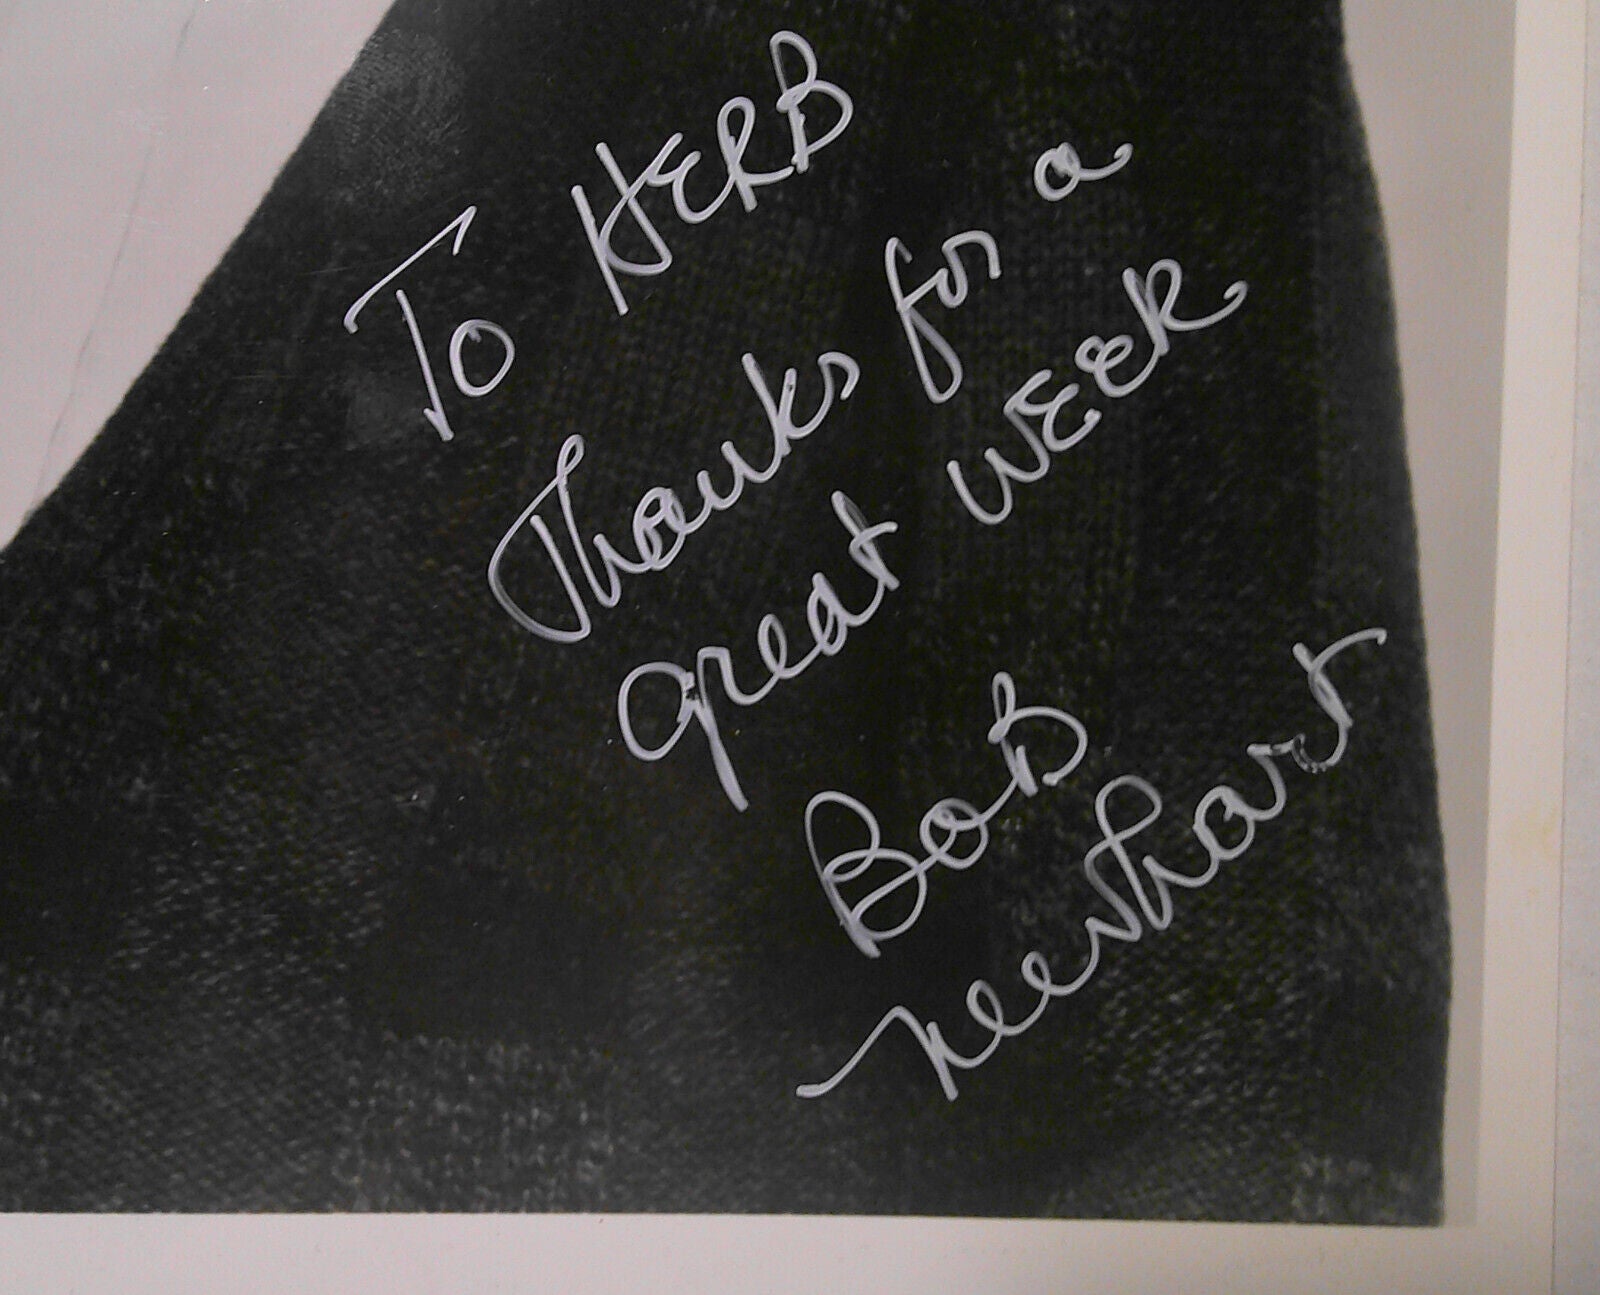 To HERB
Thanks for a
great WEEK
BoB
Newhart